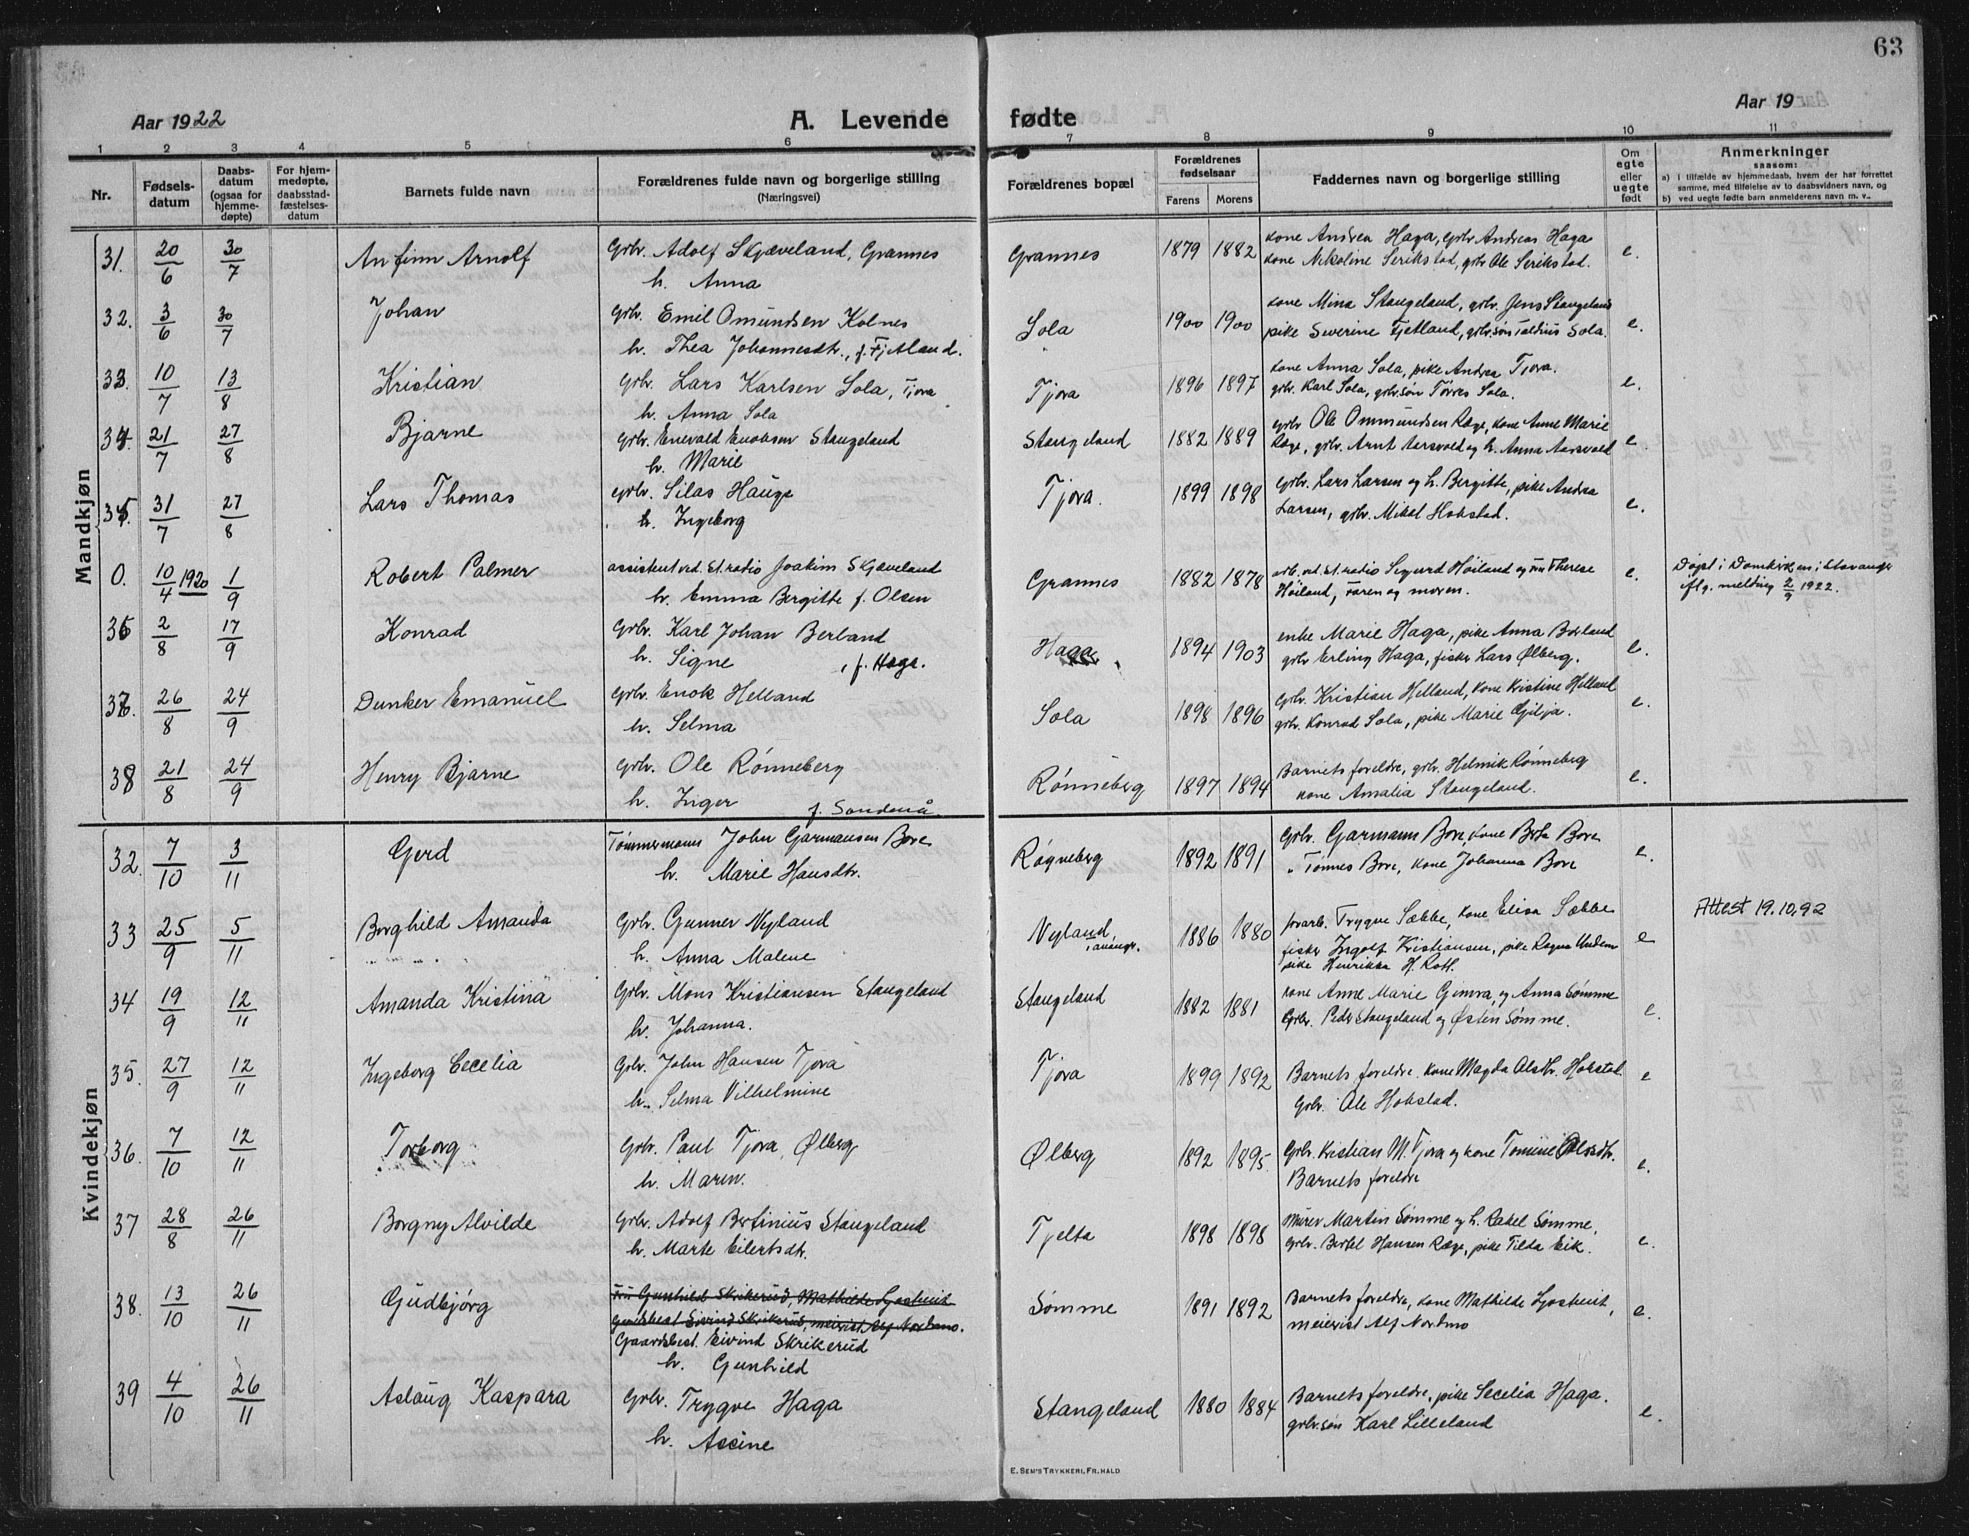 63
Aar 1922 A. Levende fødte Aar 19
1 2 3 4 5 6 7 8 9 10 11
Nr. Fødsels-datum Daabs-datum (ogsaa for hjemme-døpte) For hjem-medøpte, daabsstad-fæstelses-datum Barnets fulde navn Forældrenes fulde navn og borgerlige stilling (Næringsvei) Forældrenes bopæl Forældrenes fødselsaar Farens Morens Faddernes navn og borgerlige stilling Om egte eller uegte født Anmerkninger saasom:
a) I tilfælde av hjemmedaab, hvem der har forrettet samme, med tilføielse av to daabsvidners navn, og
b) ved uegte fødte barn anmelderens navn m. v.
Mandkjøn
31. 20/6 30/7 Anfinn Arnolf Grbr. Adolf Skjæveland, Grannes Grannes 1879 1882 kone Andrea Haga, grbr. Andreas Haga e.
h. Anna kone Nikoline Serikstad, grbr. Ole Serikstad.
32. 3/6 30/7 Johan Grbr. Emil Omundsen Kolnes Sola 1900 1900 kone Mina Stangeland, grbr. Jens Stangeland e.
h. Thea Johannesdtr., f. Fjetland. pike Severine Fjetland, grbr.søn Taldius Sola.
33. 10/7 13/8 Kristian Grbr. Lars Karlsen Sola, Tjora Tjora 1896 1897 kone Anna Sola, pike Andrea Tjora. e.
h. Anna Sola grbr. Karl Sola, grbr.søn Tørres Sola.
34. 21/7 27/8 Bjarne Grbr. Enevald Enoksen Stangeland Stangeland 1882 1889 grbr. Ole Ommundsen Ræge, kone Anne Marie e
h. Marie Ræge, grbr. Arnt Aarsvold og h. Anna Aarsvold
35. 31/7 27/8 Lars Thomas Grbr. Silas Hauge Tjora. 1899 1898 Grbr. Lars Larsen og h. Bergitte, pike Andrea e.
h. Ingeborg Larsen, grbr. Mikal Hokstad.
0. 10/4 1920 1/9 Robert Palmer assistent ved st. radio Joakim Skjæveland Grannes 1882 1878 arb. ved. st. radio Sigurd Höiland og fru Therese e. Døpt i Domkirken i Stavanger
h. Emma Bergitte f. Olsen Höiland, faren og moren. flg. melding 2/9 1922.
36 2/8 17/9 Konrad Grbr. Karl Johan Berland Haga 1894 1903 enke Marie Haga, pike Anna Borland e.
h. Signe, f. Haga. grbr Erling Haga, fisker Lars Ølberg.
37. 26/8 24/9 Dunker Emanuel Grbr. Enok Helland Sola 1898 1896 Grbr. Kristian Helland, kone Kristine Helland e.
h. Selma grbr. Konrad Sola, pike Marie Gilja.
38 21/8 24/9 Henry Bjarne Grbr. Ole Rønneberg Rønneberg 1897 1894 Barnets foreldre, grbr. Helmik Rønneberg e.
h. Inger f. Sandsmå. kone Amalia Stangeland.
Kvindekjøn
32. 7/10 3/11 Gerd Tømmermann John Garmansen Bore Røgneberg 1892 1891 Grbr. Garmann Bore, kone Berta Bore e.
h. Marie Hansdtr. " Tønnes Bore, kone Johanna Bore
33 25/9 5/11 Borghild Amanda Grbr. Gunner Nyland Nyland, 1886 1880 forarb. Trygve Sæbbe, kone Elisa Sæbbe e Attest 19.10.92
h. Anna Malene fisker Ingolf Kristiansen, pike Ragna
pike Henrikka H. Rott.
34 19/9 12/11 Amanda Kristina Grbr. Mons Kristiansen Stangeland Stangeland 1882 1881 kone Anne Marie Gimra, og Anna Sømme e.
h. Johanna. Grbr. Peder Stangeland og Østen Sømme.
35. 27/9 12/11 Ingeborg Cecelia Grbr. John Hansen Tjora Tjora 1899 1892 Barnets foreldre. kone Magda Olsdtr. Hokstad e
h. Selma Vilhelmine Grbr. Ole Hokstad.
36. 7/10 12/11 Torborg Grbr. Paul Tjora, Ølberg Ølberg 1892 1895. Grbr. Kristian M. Tjora og kone Tomine Olsdtr. e.
h. Maren. Barnets foreldre
37 28/8 26/11 Borgny Alvilde Grbr. Adolf Bertinius Stangeland Tjelta 1898 1898 Murer Martin Sømme og h. Rakel Sømme, e.
h. Marte Eilertsdtr. Grbr. Bertel Hansen Ræge, pike Tilda Eik.
38. 13/10 26/11 Gudbjörg Fru Gunhild Skrikerud, Mathilde Ljostveit Sømme 1891 1892 Barnets foreldre, kone Mathilde Ljostveit, e.
gaardsbest Eivind Skrikerud, meierist Alf Nordmo. meierist Alf Nordmo
Gaardsbest. Eivind Skrikerud
h. Gunhild
39 4/10 26/11 Aslaug Kaspara Grbr. Trygve Haga Stangeland 1880 1884 Barnets foreldre, pike Secelia Haga. e.
h. Assine grbr.søn Karl Lilleland
E. SEM'S TRYKKERI, FR.HALD